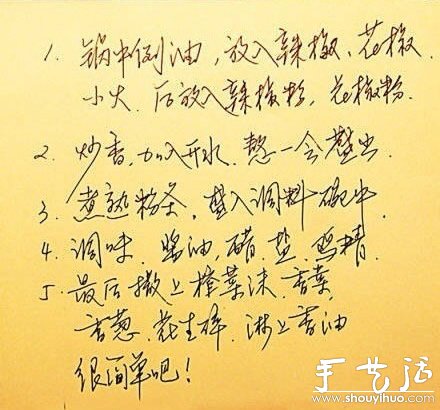 1. 锅中倒油,放入辣椒、花椒.
小火.后放入辣椒粉,花椒粉.
2. 炒香,加入开水. 一会盛出
3. 煮熟粉条,盛入调料碗中.
4. 调味.酱油,醋.盐.鸡精
5. 最后撒上榨菜沫.香菜
香葱.花生碎.淋上香油
很简单吧!
手艺活
www.shouyihuo.com